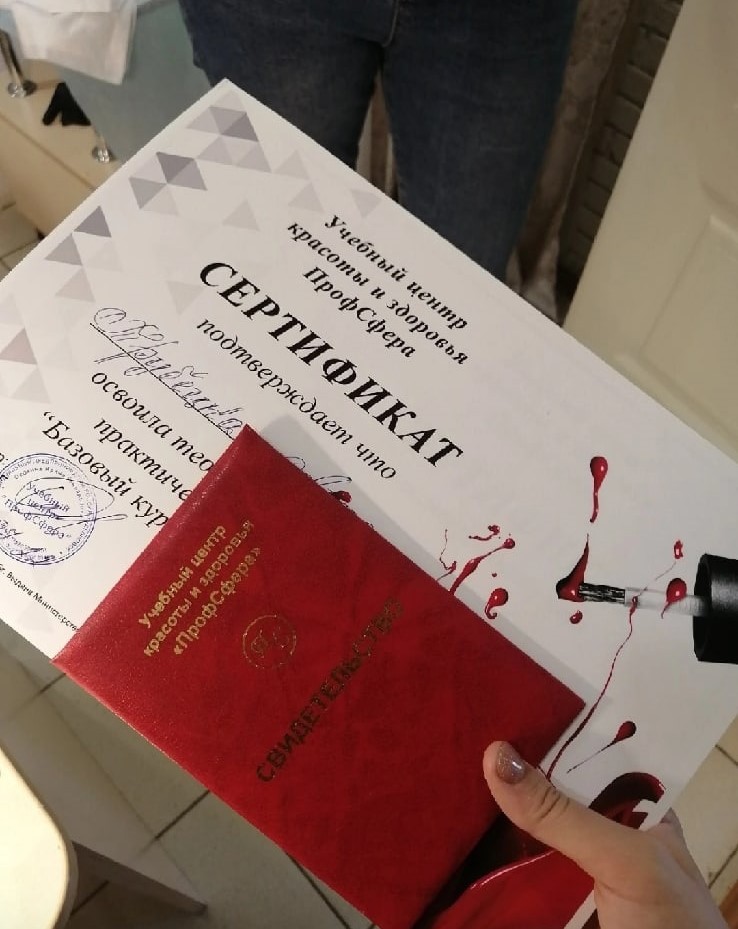 Учебный центр
красоты и здоровья
ПрофСфера
СЕРТИФИКАТ
подтверждает что
освоила тео
практиче
"Базовый кур
Учебный
центр
"ПрофСфера"
Учебный центр
красоты и здоровья
«ПрофСфера»
СВИДЕТЕЛЬСТВО